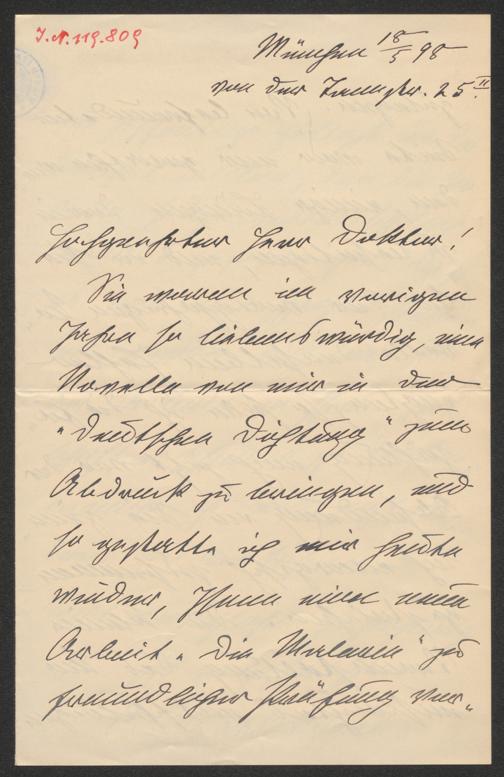 J.N. 119.809
München 18/5 98
von der Tannstr. 25 II.
Hochgeehrter Herr Doktor!
Sie waren im vorigen
Jahre so liebenswürdig, eine
Novelle von mir in der
"Deutschen Dichtung" zum
Abdruck zu bringen, und
so gestatte ich mir heute
wieder, Ihnen eine neue
Arbeit "Die Malerin" zu
freundlicher Prüfung vor-